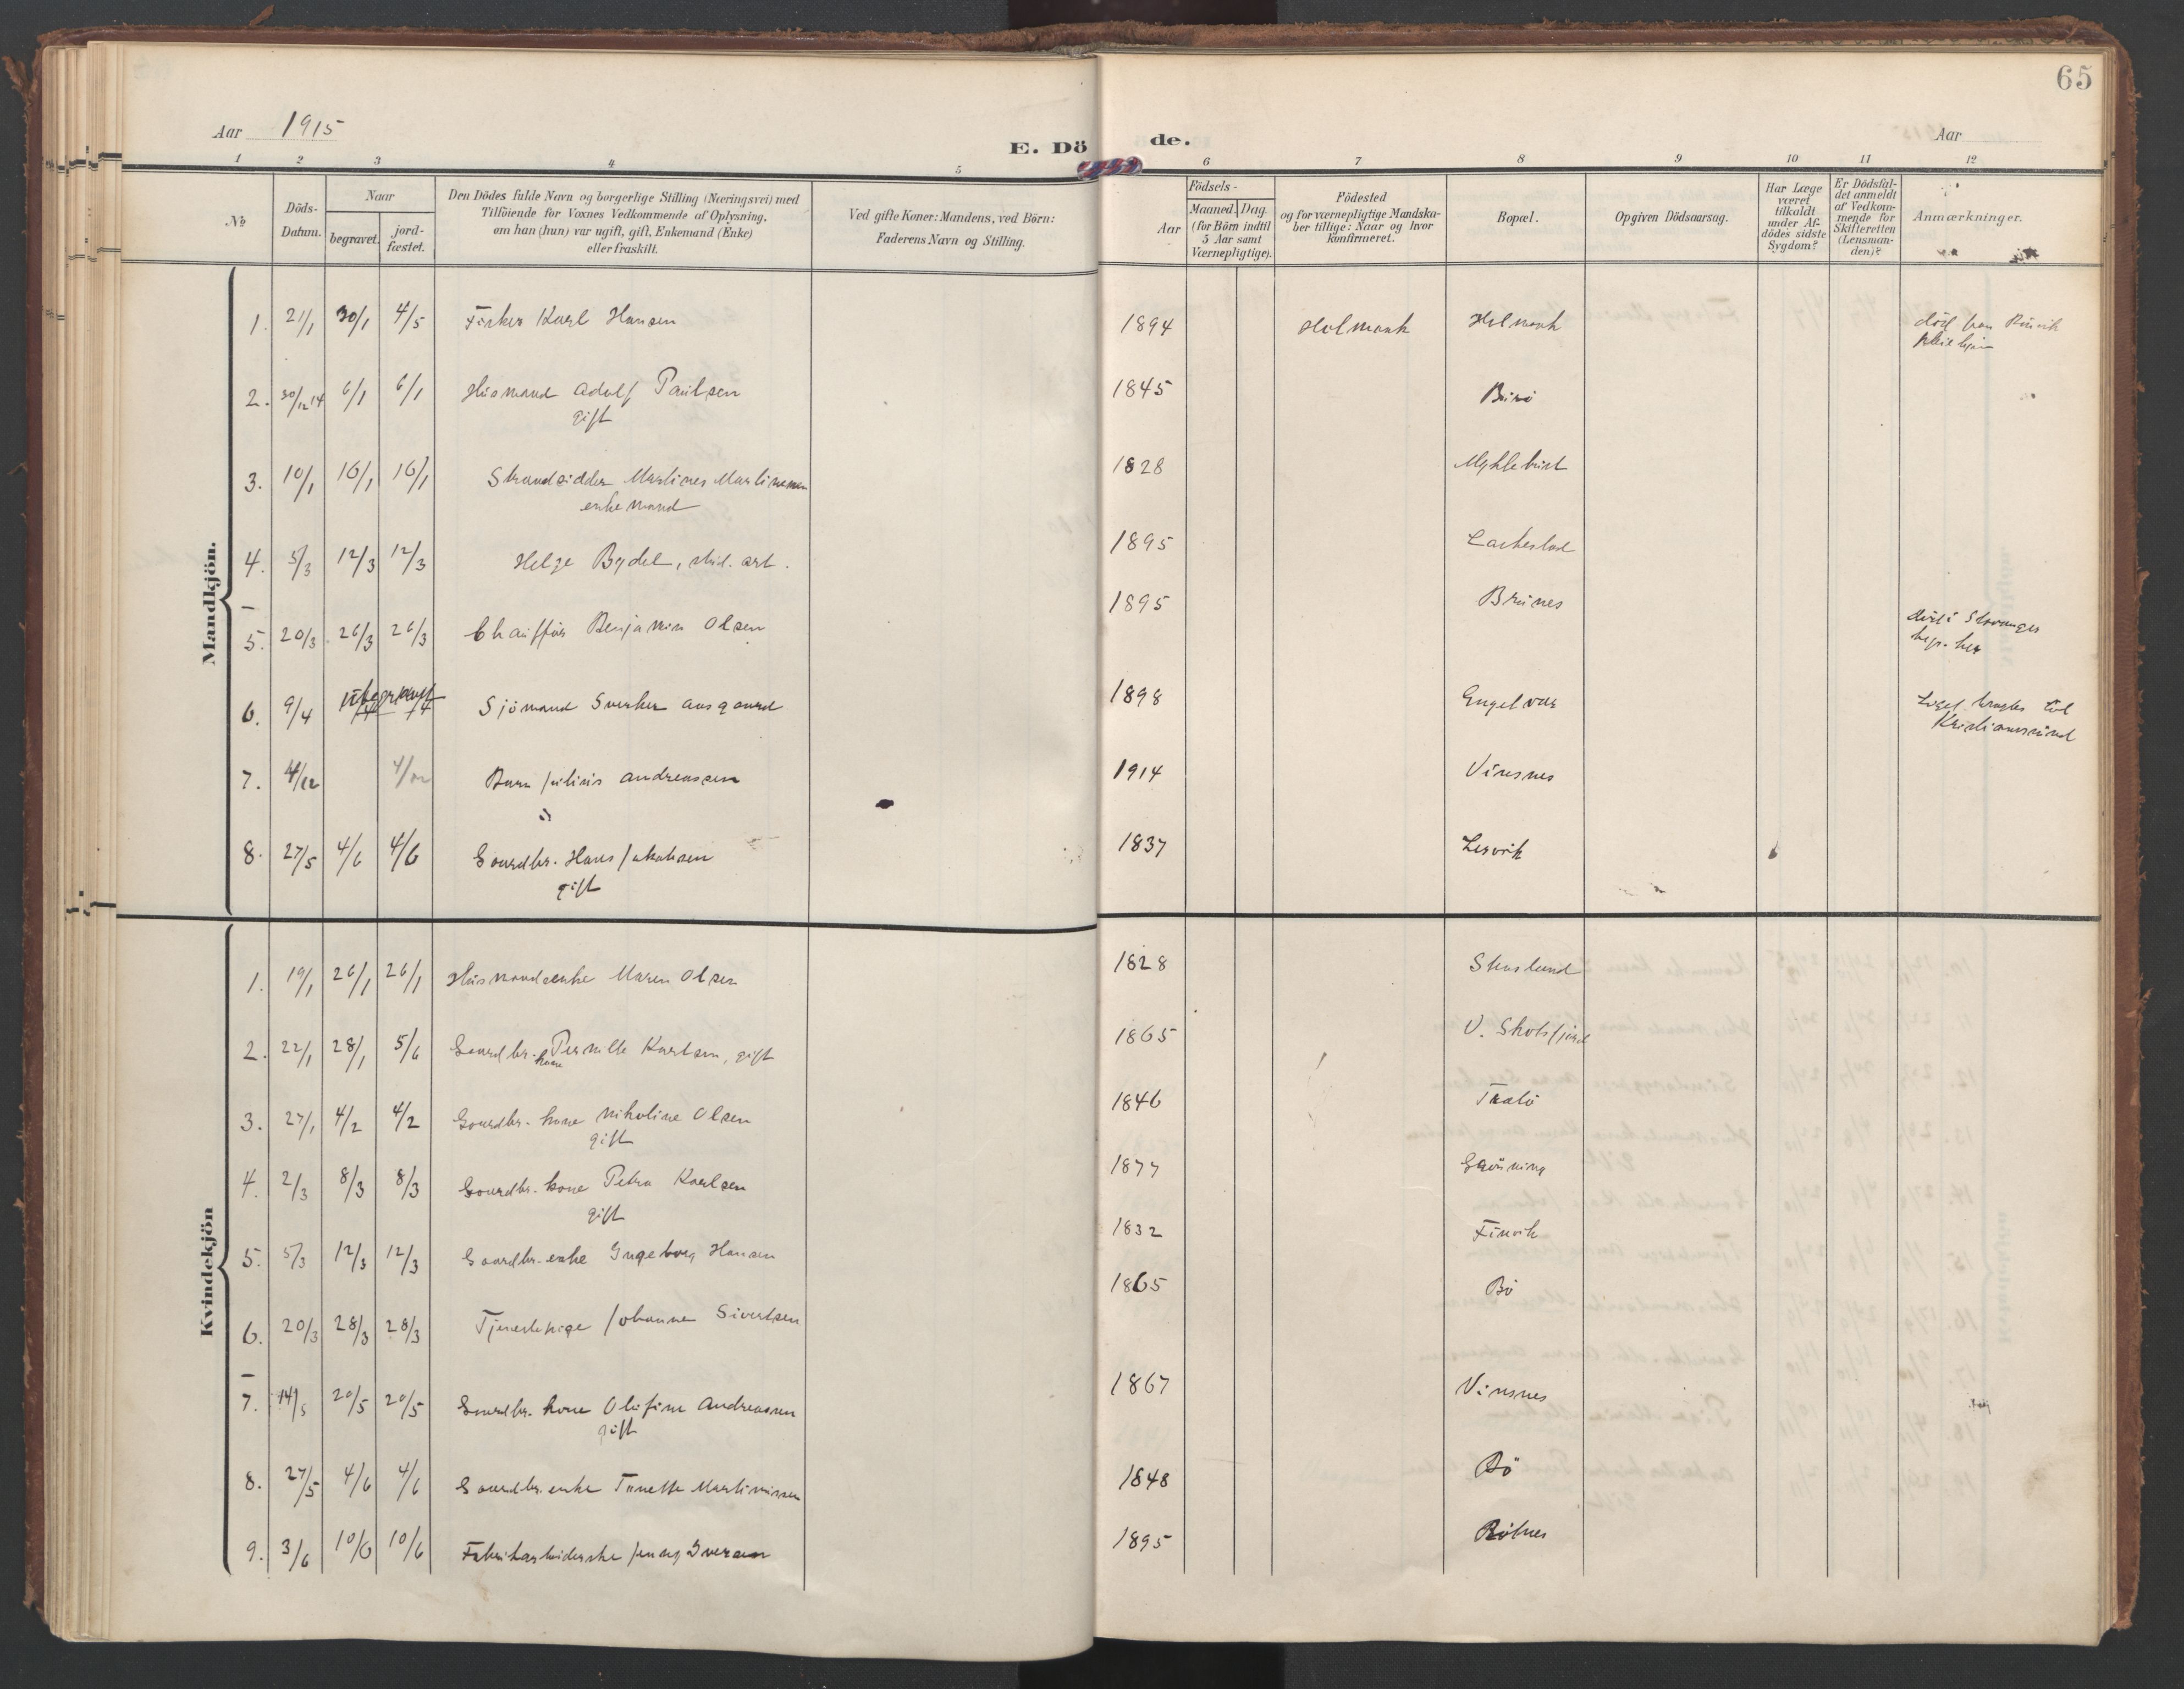 65
Aar 1915
E. Dö
de.
Aar
1 2 3 4 5 6 7 8 9 10 11 12
No
Döds-
Datum.
Naar
begravet.
jord-
fæstet.
Den Dödes fulde Navn og borgerlige Stilling (Næringsvei) med
Tilföiende for Voxnes Vedkommende af Oplysning,
om han (hun) var ugift, gift, Enkemand (Enke)
eller fraskilt.
Ved gifte Koner: Mandens, ved Börn:
Faderens Navn og Stilling.
Födsels-
Aar
Maaned. Dag.
(for Börn indtil
5 Aar samt
Værnepligtige).
Födested
og for værnepligtige Mandska-
ber tillige: Naar og hvor
konfirmeret.
Bopæl.
Opgiven Dödsaarsag.
Har Læge
været
tilkaldt
under Af-
dödes sidste
Sygdom?
Er Dödsfal-
det anmeldt
af Vedkom-
mende for
Skifteretten
(Lensman-
den)?
Anmærkninger.
Mandkjön.
1. 21/1 30/1 4/5 Fisker Karl Hansen 1894 Holmank Holmank
2. 30/12 14 6/1 6/1 Husmand Adolf Paulsen 1845
gift
3. 10/1 16/1 16/1 Strandsidder Martines Martinesen 1828 Myklebust
enkemand
4. 5/3 12/3 12/3 Helge Bydel, stud. art. 1895
5. 20/3 26/3 26/3 Chauffør Benjamin Olsen 1895 Brunes
död i Stavanger
begr. her
6. 9/4 Sjömand Sverker Ausgaard 1898 Engelvær
Liget bragtes til
Kristianssund
7. 4/12 4/12 Barn Julius Andreassen 1914 Vinsnes
8. 27/5 4/6 4/6 Gaardbr. Hans Jakobsen 1837 Lervik
gift
Kvindekjön
1. 19/1 26/1 26/1 Husmandsenke Maren Olsen 1828
2. 22/1 28/1 5/6 Gaardbr. Pernille Karlsen, gift 1865 V. Skotsfjord
kone
3. 27/1 4/2 4/2 Gaardbr. kone Nikoline Olsen 1846 Tralö
gift
4. 2/3 8/3 8/3 Gaardbr. kone Petra Karlsen 1877 Grönning
gift
5. 5/3 12/3 12/3 Gaardbr. enke Ingeborg Hansen 1832 Finvik
6. 20/3 28/3 28/3 Tjenestepige Johanne Sivertsen 1865 Bö
7. 14/5 20/5 20/5 Gaardbr. kone Olufine Andreassen 1867 Vinsnes
gift
8. 27/5 4/6 4/6 Gaardbr. enke Tanette Martinissen 1848 Bö
9. 3/6 10/6 10/6 Fabrikarbeiderske Jenny Iversen 1895 Rötnes